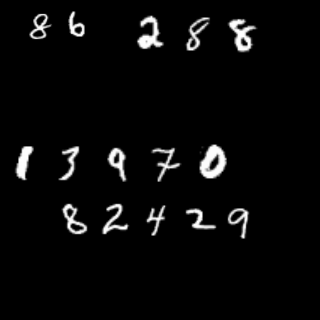 86 288
13970
82429